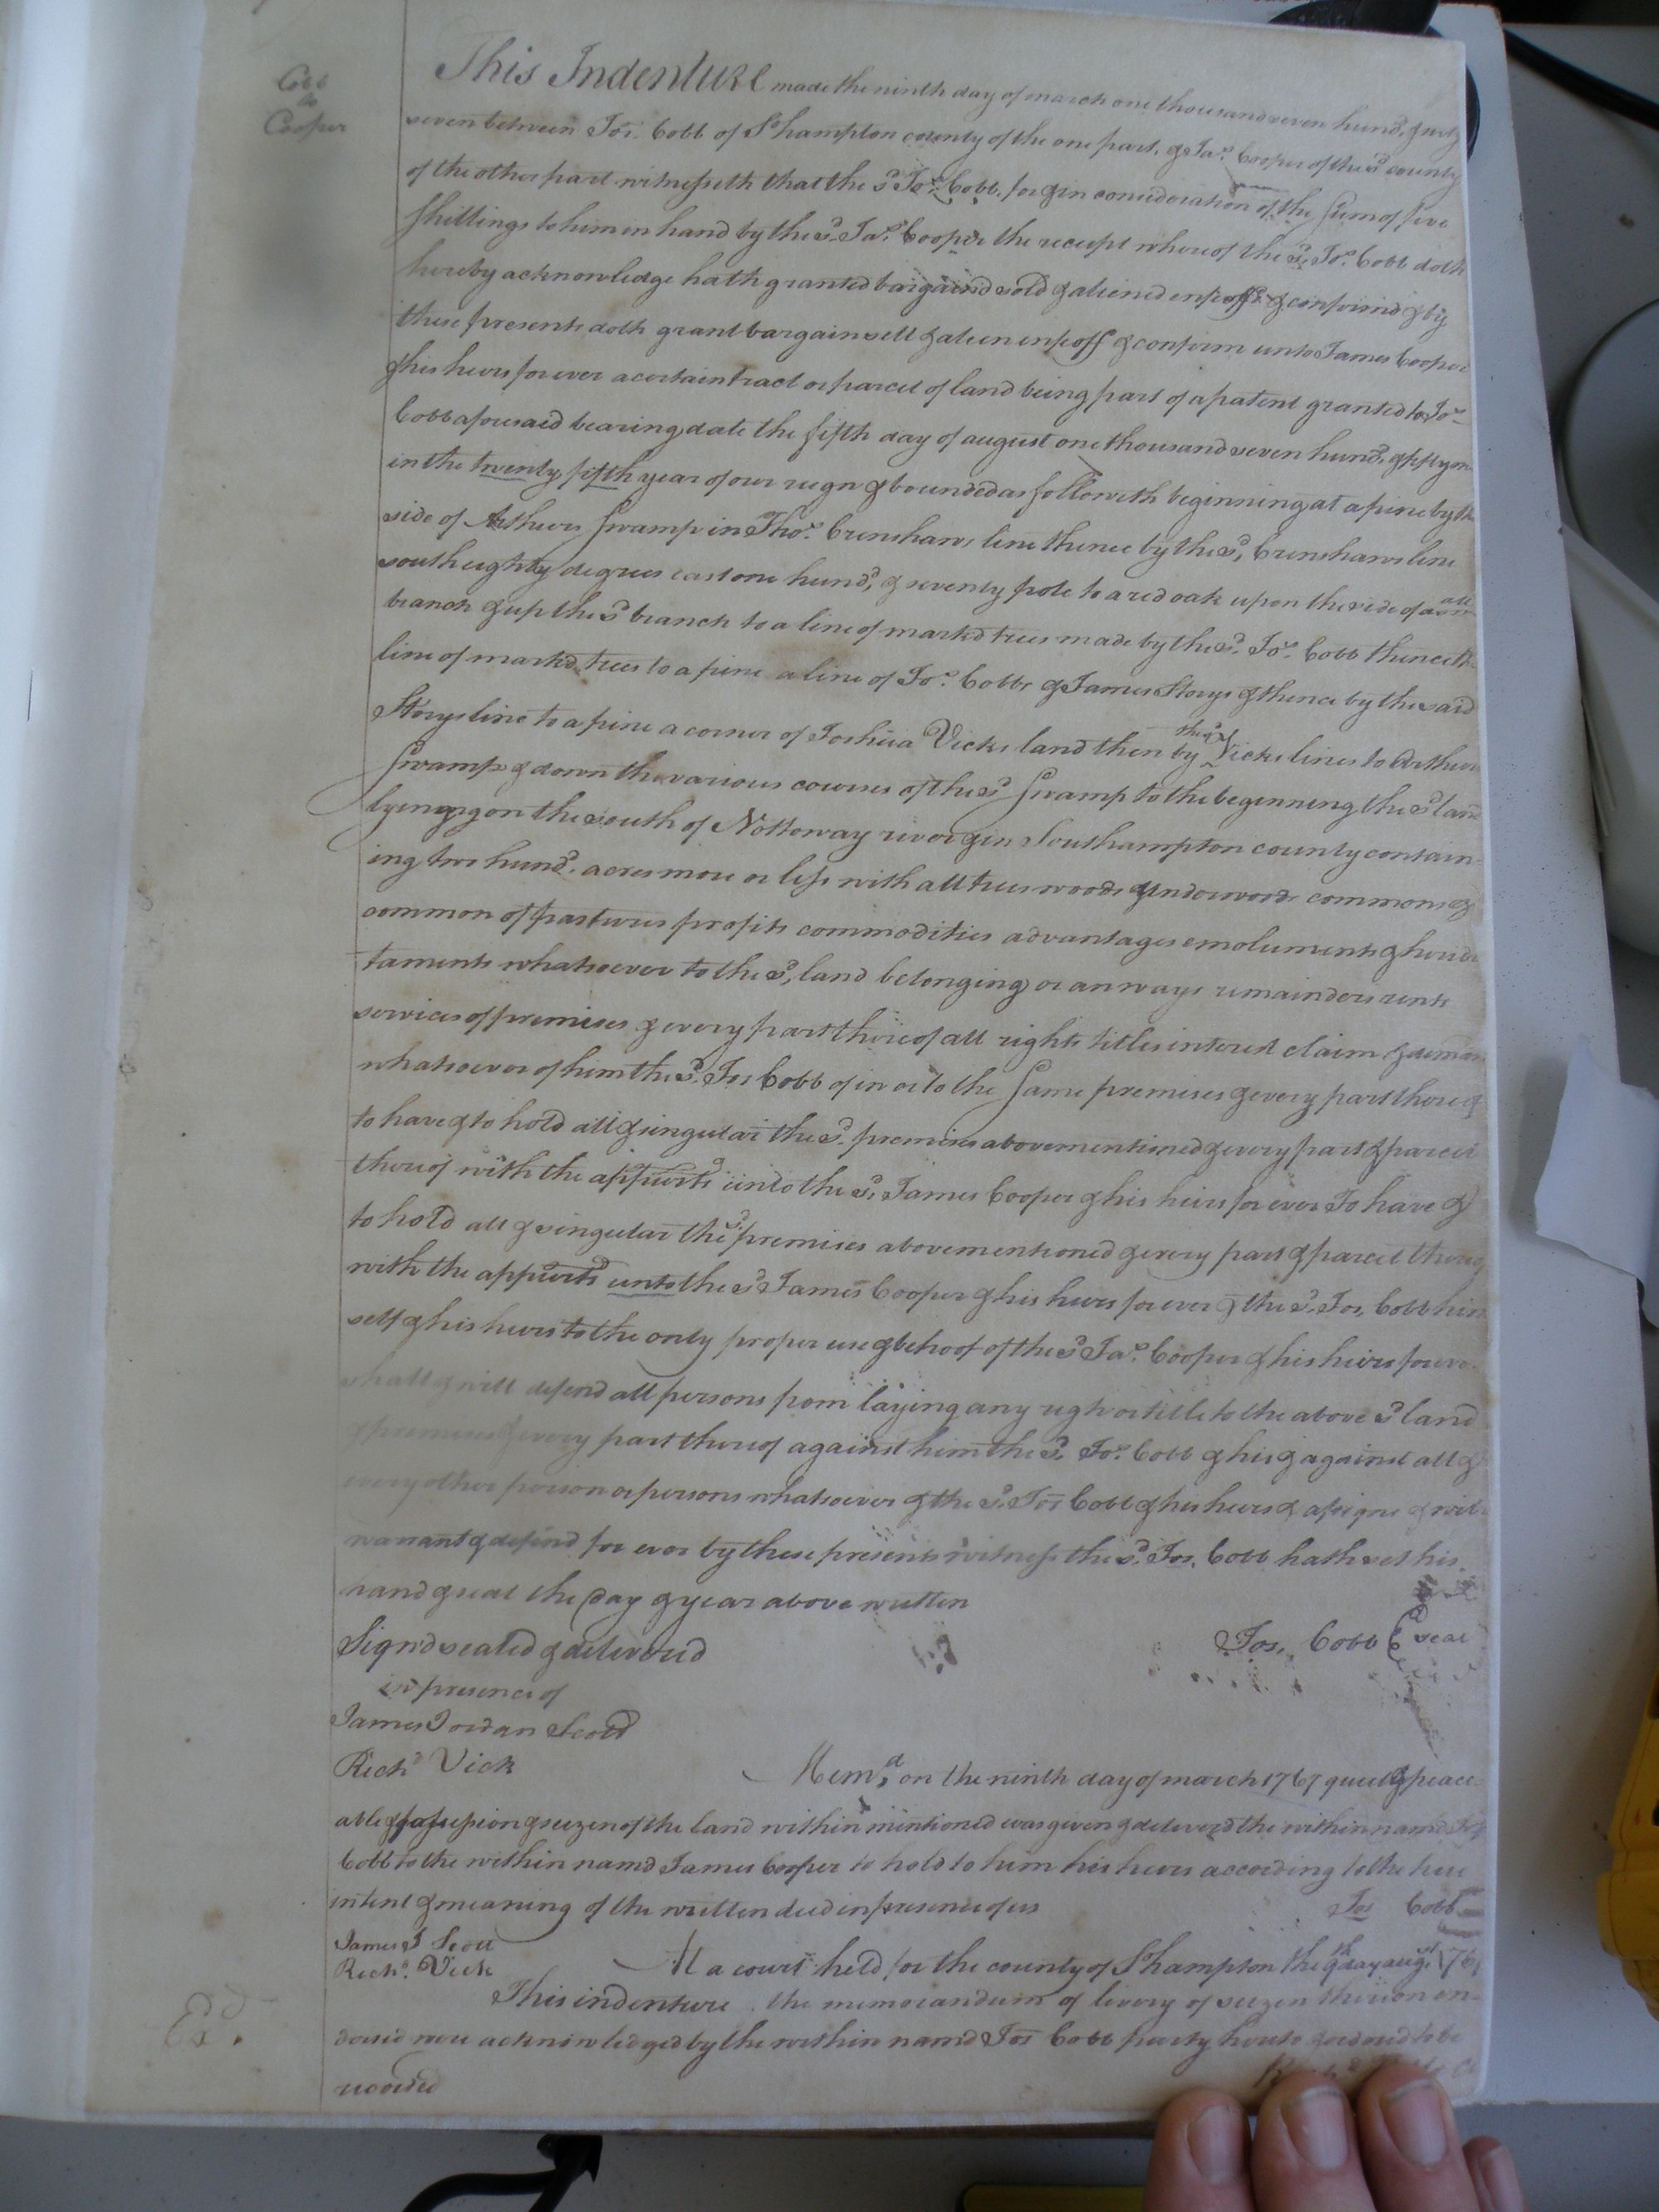 Cobb
to
Cooper
This Indenture made the ninth day of march one thousand seven hund.d & sixty
seven between Jos. Cobb of S.hampton county of the one part, & Ja.s Cooper of the s.d county
of the other part witnesseth that the s.d Jo.s Cobb, for & in consideration of the sum of five
shillings to him in hand by the s.d Ja.s Cooper the receipt whereof the s.d Jo.s Cobb doth
hereby acknowledge hath granted bargaind sold & aliened enfeoff.d & confirmd & by
these presents doth grant bargain sell & alien enfeoff & confirm unto James Cooper
& his heirs for ever a certain tract or parcel of land being part of a patent granted to Jo.s
Cobb aforesaid bearing date the fifth day of august one thousand seven hund.d & fifty one
in the twenty fifth year of our reign & bounded as followeth beginning at a pine by the
side of Arthurs Swamp in Tho.s Crenshaws line thence by the s.d Crenshaws line
south eighty degrees east one hund.d & seventy pole to a red oak upon the side of a small
branch & up the s.d branch to a line of markd trees made by the s.d Jo.s Cobb thence the
line of markd trees to a pine a line of Jo.s Cobbs & James Storys & thence by the said
Storys line to a pine a corner of Joshua Vicks land then by the s.d Vicks lines to Arthurs
Swamp & down the various courses of the s.d Swamp to the beginning the s.d land
lyeing on the south of Nottoway river & in Southampton county contain-
ing two hund.d acres more or less with all trees woods & underwoods commons &
common of pastures profits commodities advantages emoluments & heredi
taments whatsoever to the s.d land belonging or anways remainders rents
services of premises & every part thereof all rights titles interest claim & deman
whatsoever of him the s.d Jos Cobb of in or to the Same premises & every part thereof
to have & to hold all & singular the s.d premises abovementioned & every part & parcel
thereof with the appurts unto the s.d James Cooper & his heirs for ever To have &
to hold all & singular the s.d premises abovementioned & every part & parcel thereof
with the appurts unto the s.d James Cooper & his heirs for ever & the s.d Jos, Cobb him
self & his heirs to the only proper use & behoof of the s.d Ja.s Cooper & his heirs forever
shall & will defend all persons from laying any righ or title to the above s.d land
& premises & every part thereof against him the s.d Jo.s Cobb & his & against all &
every other person or persons whatsoever & the s.d Jos Cobb & his heirs & assigns & will
warrant & defend for ever by these presents witness the s.d Jos. Cobb hath set his
hand & seal the day & year above written
Signd sealed & deliverd
Jos. Cobb seal
in presence of
James Jordan Scott
Rich.d Vick
Mem.d on the ninth day of march 1767 quiet & peace-
able possession & seizen of the land within mentioned was given & deliverd the within namd Jos
Cobb to the within namd James Cooper to hold to him his heirs according to the true
intent & meaning of the written deed in presence of us
Jos Cobb
James J Scott
Rich.d Vick
At a court held for the county of S.hampton the day augst 176
This indenture & the memorandum of livery of seizen thereon en-
dorsed were acknowledged by the within namd Jos Cobb party hereto & ordered to be
recorded
Ex.d